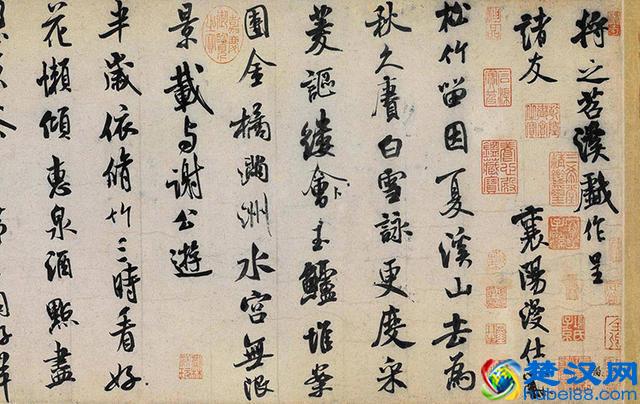 將之苕溪戲作呈
諸友
襄陽漫仕黻
松竹留因夏溪山去為
秋久賡白雪詠更度采
菱謳縷會玉鱸堆案
團金橘滿洲水宮無限
景載與謝公遊
半歲依脩竹三時看好
花懶傾惠泉酒點盡
楚汉网
hubei88.com